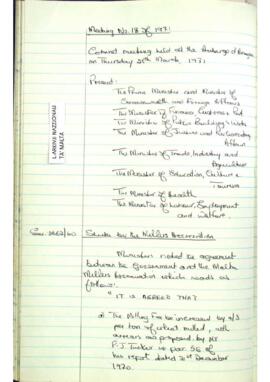 Meeting No. 18 of 1971
Cabinet meeting held at the Auberge d'Aragon
on Thursday 25th March, 1971
Present:
The Prime Minister and Minister of
Commonwealth and Foreign Affairs
The Minister of Finance, Customs & Port
The Minister of Public Building & Works
The Minister of Justice and Parliamentary
Affairs
The Minister of Trade, Industry and
Agriculture
The Minister of Education, Culture &
Tourism
The Minister of Health
The Minister of Labour, Employment
and Welfare.
L-ARKIVJI NAZZJONALI
TA' MALTA
Strike by the Millers Association
Ministers noted the agreement
between the Government and the Malta
Millers Association which reads as
follows:
"IT IS AGREED THAT
a) The Milling Fee be increased by
per ton of wheat milled, with
arrears as proposed by Mr
P.J. Tucker in par. 56 of
his report dated December
1970.